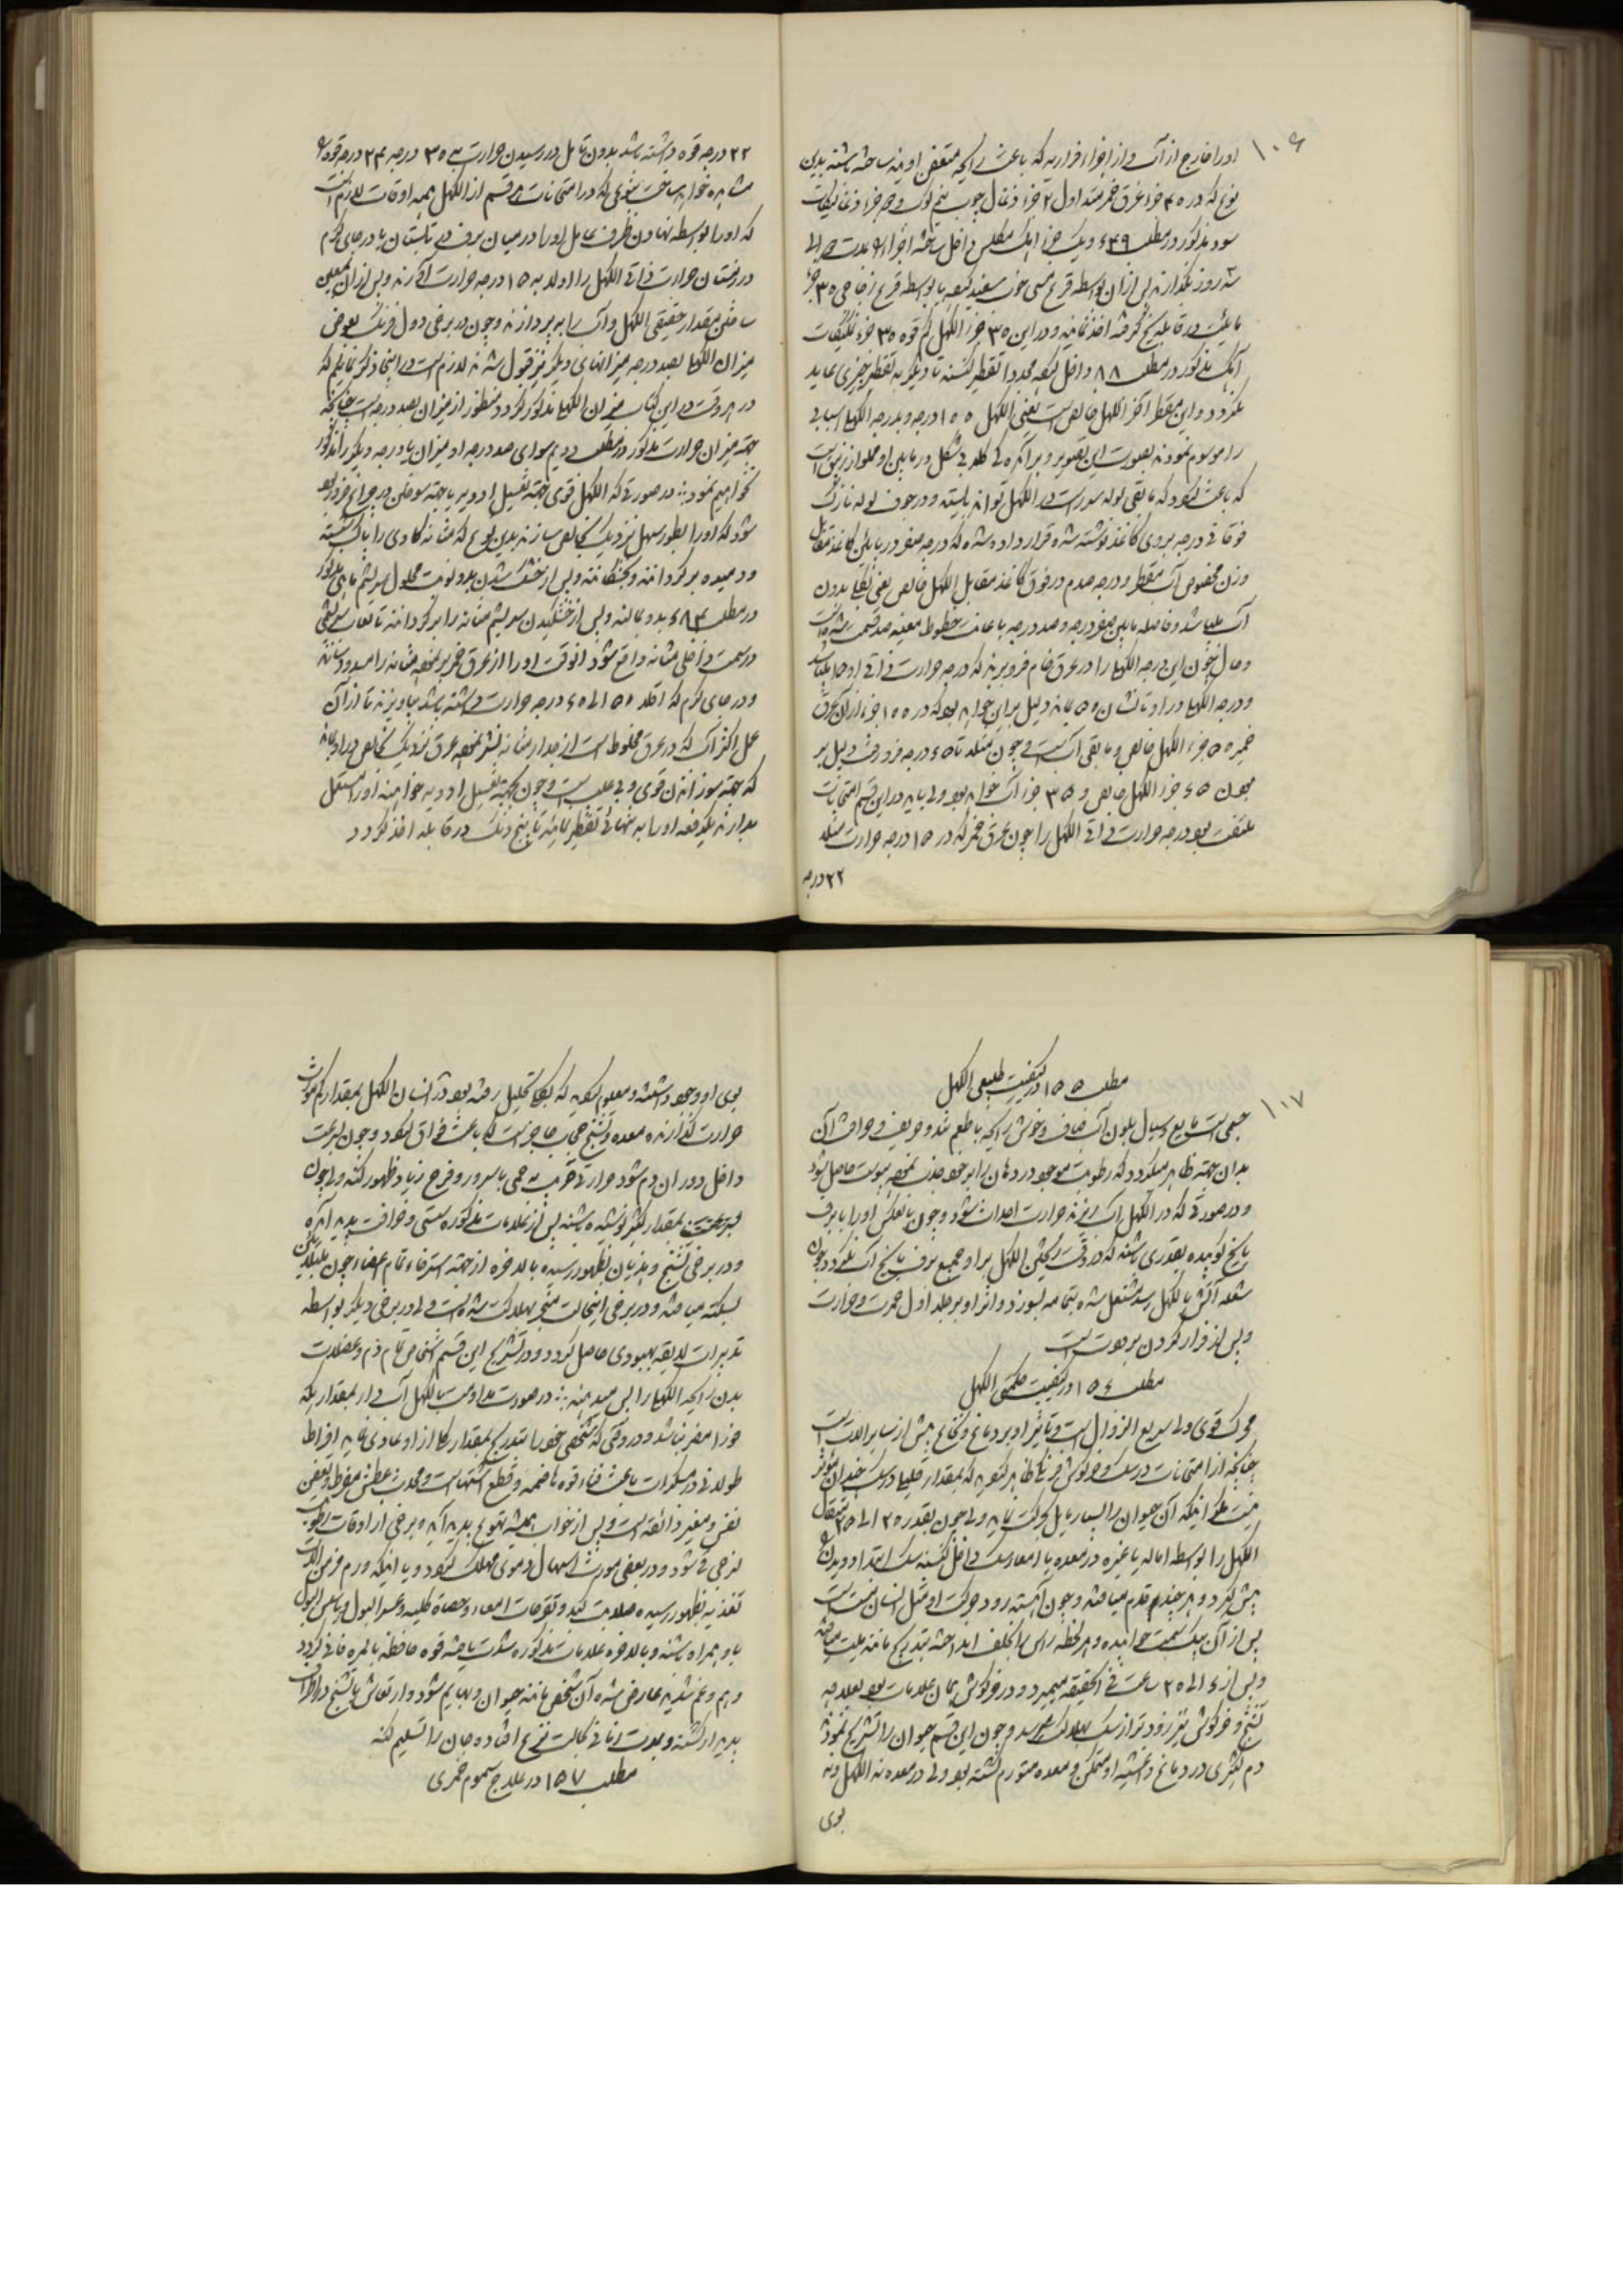 ۱۰۶
اورا خارج از آب و از اجزاء فراریه که باعث رایحه متعفن اویند ساخته باشند بدین
نوع که در ۴۵ جزء عرق خمر مثلا اول ۲ جزء ذغال چوب نیم کوب و جزء ذغالیکات
سود مذکور در مطلب ۴۳۹ و یک جزء آهک مکلس داخل ساخته اجزاء را مدت الی
سه روز بگذارند پس از آن بواسطه قرع مسی جوف سفید کرده یا بواسطه قرع زجاجی ۳۵ جزء
مایع در قابله یخ گرفته اخذ نمایند و در این ۳۵ جزء الکهل کم قوه ۳۵ جزء
آهک مذکور در مطلب ۸۸ داخل کرده مجددا تقطیر کنند تا دیگر به تقطیر چیزی عاید
نگردد و این مقطر آخر الکهل خالص است یعنی الکهل ۱۰۰ درجه و بدرجه الکهل اسبابی
را موسوم نمودند بصورت این تصویر و برآمده کله شکل در مابین او مملو از زیبق است
که باعث شود که مابقی لوله سر راست در الکهل تواند بایستد و در جوف لوله نازک
فوقانی درجه بر روی کاغذ نوشته شده قرار داده شده که درجه صفر در پائین کاغذ مقابل
وزن مخصوص آب مقطر و درجه صدم در فوق کاغذ مقابل الکهل خالص یعنی بکلی بدون
آب میباشد و فاصله مابین صفر درجه و صد درجه باعانت خطوط معینه صد قسمت شده است
و حال چون این درجه الکهل را در عرق خام فرو برند که درجه حرارت ذاتی او ۱۵ باشد
و درجه الکهل در او تا نشان ۵۵ یابد دلیل بر این خواهد بود که در ۱۰۰ جزء از آن عرق
خمر ۵۵ جزء الکهل خالص و مابقی آب است و چون مثلا تا ۶۵ درجه فرو رفت دلیل بر
بودن ۶۵ جزء الکهل خالص و ۳۵ جزء آب خواهد بود ولی باید در این قسم امتحانات
ملتفت بود درجه حرارت ذاتی الکهل را چون عرق خمر که در ۱۵ درجه حرارت مثلا
۲۲ درجه
۲۲ درجه قوه داشته باشد بدون تامل در رسیدن حرارت به ۳۵ درجه ۲۴ درجه قوه او
مشاهده خواهد ساخت بنوعی که در امتحانات هر قسم از الکهل همه اوقات لازم است
که اورا بواسطه نهادن ظرف حامل اورا در میان برف در تابستان یا در جای گرم
در زمستان حرارت ذاتی الکهل را اولا به ۱۵ درجه حرارت آورند و پس از آن بمعین
ساختن مقدار حقیقی الکهل و آب را به پردازند و چون در برخی دول فرنک بعوض
میزان الکهل بصد درجه میزانهای دیگر نیز قبول شده لازم است در اینجا ذکر نمائیم که
در هر وقت در این کتاب میزان الکهل مذکور گردد منظور از میزان بصد درجه است چنانچه
جهة میزان حرارت مذکور در مطلب دویم سوای صد درجه او میزان یا درجه دیگر را مذکور
نخواهیم نمود ؞ در صورتی که الکهل قوی جهة تحصیل ادویه یا جهة سوختن در چراغ ضرور
شود که اورا بطور سهل نزدیک بخالص سازند بدین نوع که مثانه گاوی را پاک شسته
و دمیده برگردانند و بخشکانند و پس از خشک شدن به دو نوبت محلول سریشم ماهی مذکور
در مطلب ۶۸۴ بدو بمالند و پس از خشکیدن سریشم مثانه را برگردانند تا لعاب سریشمی
در سمت داخلی مثانه واقع شود آنوقت اورا از عرق خمر پر نموده مثانه را مسدود سازند
و در جای گرم که اقلا ۵۰ الی ۶۰ درجه حرارت داشته باشد بیاویزند تا از آن
عمل اکثر آب که در عرق مخلوط است از جدار مثانه نشر نموده عرق نزدیک بخالص در او بماند
که جهة سوزانیدن قوی و بی عیب است و چون بجهة تحصیل ادویه خواهند اورا مستعمل
بدارند یکدفعه اورا به تنهائی تقطیر نمایند تا پنج دنک در قابله اخذ گردد
۱۰۷
مطلب ۱۵۵ در کیفیت طبیعی الکهل
جسمی است مایع و سیال بلون آب صاف و خوش رایحه با طعم تند و حریف و حرافت آن
بدان جهة ظاهر میگردد که رطوبت موجود در دهان را بر خود جذب نموده یبوست حاصل شود
و در صورتی که در الکهل آب ریزند حرارت احداث شود و چون بالعکس اورا با برف
یا یخ کوبیده بقدری باشند که در وقت ریختن الکهل بر او جمیع برف یا یخ آب نگردد و چون
شعله آتش بالکهل رسد مشتعل شده بتمامه بسوزد و اثر او بر جلد اول حمرت و حرارت
و پس از فرار کردن برودت است
مطلب ۱۵۶ در کیفیت حکمتی الکهل
محرک قوی ولی سریع الزوال است و تاثیر او بر دماغ و نخاع بیش از سایر آلات است
چنانچه از امتحانات در سک و خرگوش فرنگی ظاهر گردیده که بمقدار قلیل در سک چندان مؤثر
نیست مگر اینکه آن حیوان را بسیار مایل بحرکت نماید ولی چون بقدر ۲۰ الی ۲۵ مثقال
الکهل را بواسطه اماله یا غیره در معده یا امعاء سک داخل کنند سک ابتدا دویدن
پیش گیرد و هر چند قدم میافتد و چون آهسته رود حرکت او مثل انسان مست است
پس از آن بیک سمت خوابیده و هر لحظه راس را بخلف انداخته بتدریج مانند میت میافتد
و پس از ۶ الی ۲۵ ساعت فی الحقیقه میمیرد و در خرگوش همان علامات بود بعلاوه
تشنج و خرگوش نیز زودتر از سک بهلاکت رسد و چون این قسم حیوان را تشریح نمودند
دم کثیری در دماغ و اغشیه او متمکن و معده متورم گشته بود ولی در معده نه الکهل و نه
بوی
بوی او وجود داشته و معلوم گردید که بکلی تحلیل رفته بود در انسان الکهل بمقدار کم مورث
حرارت گذارنده معده و تشنج حجاب حاجز است که باعث فواق شود و چون بسرعت
داخل دوران دم شود حرارتی قریب به حمی با سرور و فرح زیاد ظهور کند ولی چون
بسرعت بمقدار کثیر نوشیده باشند پس از علامات مذکوره مستی و خرافت پدید آمده
و در برخی تشنج و هذیان بظهور رسیده بالاخره از جهة استرخاء تمام اعضاء چون مبتلایان
بسکته میافتند و در برخی اینحالت منجر بهلاکت شده است ولی در برخی دیگر بواسطه
تدبیرات لایقه بهبودی حاصل گردد و در تشریح این قسم اشخاص تمام دم و عضلات
بدن رایحه الکهل را پس میدهند ؞ در صورت مداومت بالکهل آب دار بمقداریکه
فورا مضر نباشد و در وقتی که شخصی خود را بتدریج بمقدار کلی از او عادی نماید افراط
طولانی در مسکرات باعث فناء قوه هاضمه و قطع اشتهاست و محدث عطش مفرط و تعفن
نفس و مغیر ذائقه است و پس از خواب همیشه تهوع پدید آید و برخی از اوقات رطوبت
لزجی قی شود و در بعضی مورث اسهال دموی مهلک شود و یا اینکه ورم مزمن آلات
تغذیه بظهور رسیده صلابت کبد و تقرحات امعاء و حصاة کلیه و عسر البول و یا سلس البول
با او همراه باشند و بالاخره علامات مذکوره شدت یافته قوه حافظه بالمره فانی گردد
و هم و غم شدید عارض شده آن شخص مانند حیوان و بهایم شود و ارتعاش یا تشنج در اطراف
پدیدار گشته و مدت زمانی بحالت نزع افتاده جان را تسلیم کند
مطلب ۱۵۷ در علاج سموم خمری